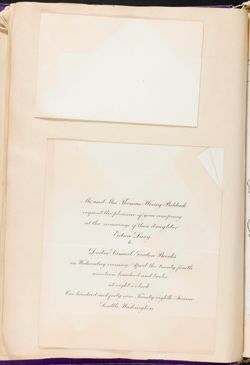 Mr. and Mrs. Thomas Henry
request the pleasure of your company
at the marriage of their daughter
Edna Lucy
to
Doctor Samuel Gordon Brooks
on Wednesday evening, April the twenty-fourth
nineteen hundred and twelve
at eight o'clock
One hundred and forty-nine Twenty-eighth Avenue
Seattle, Washington